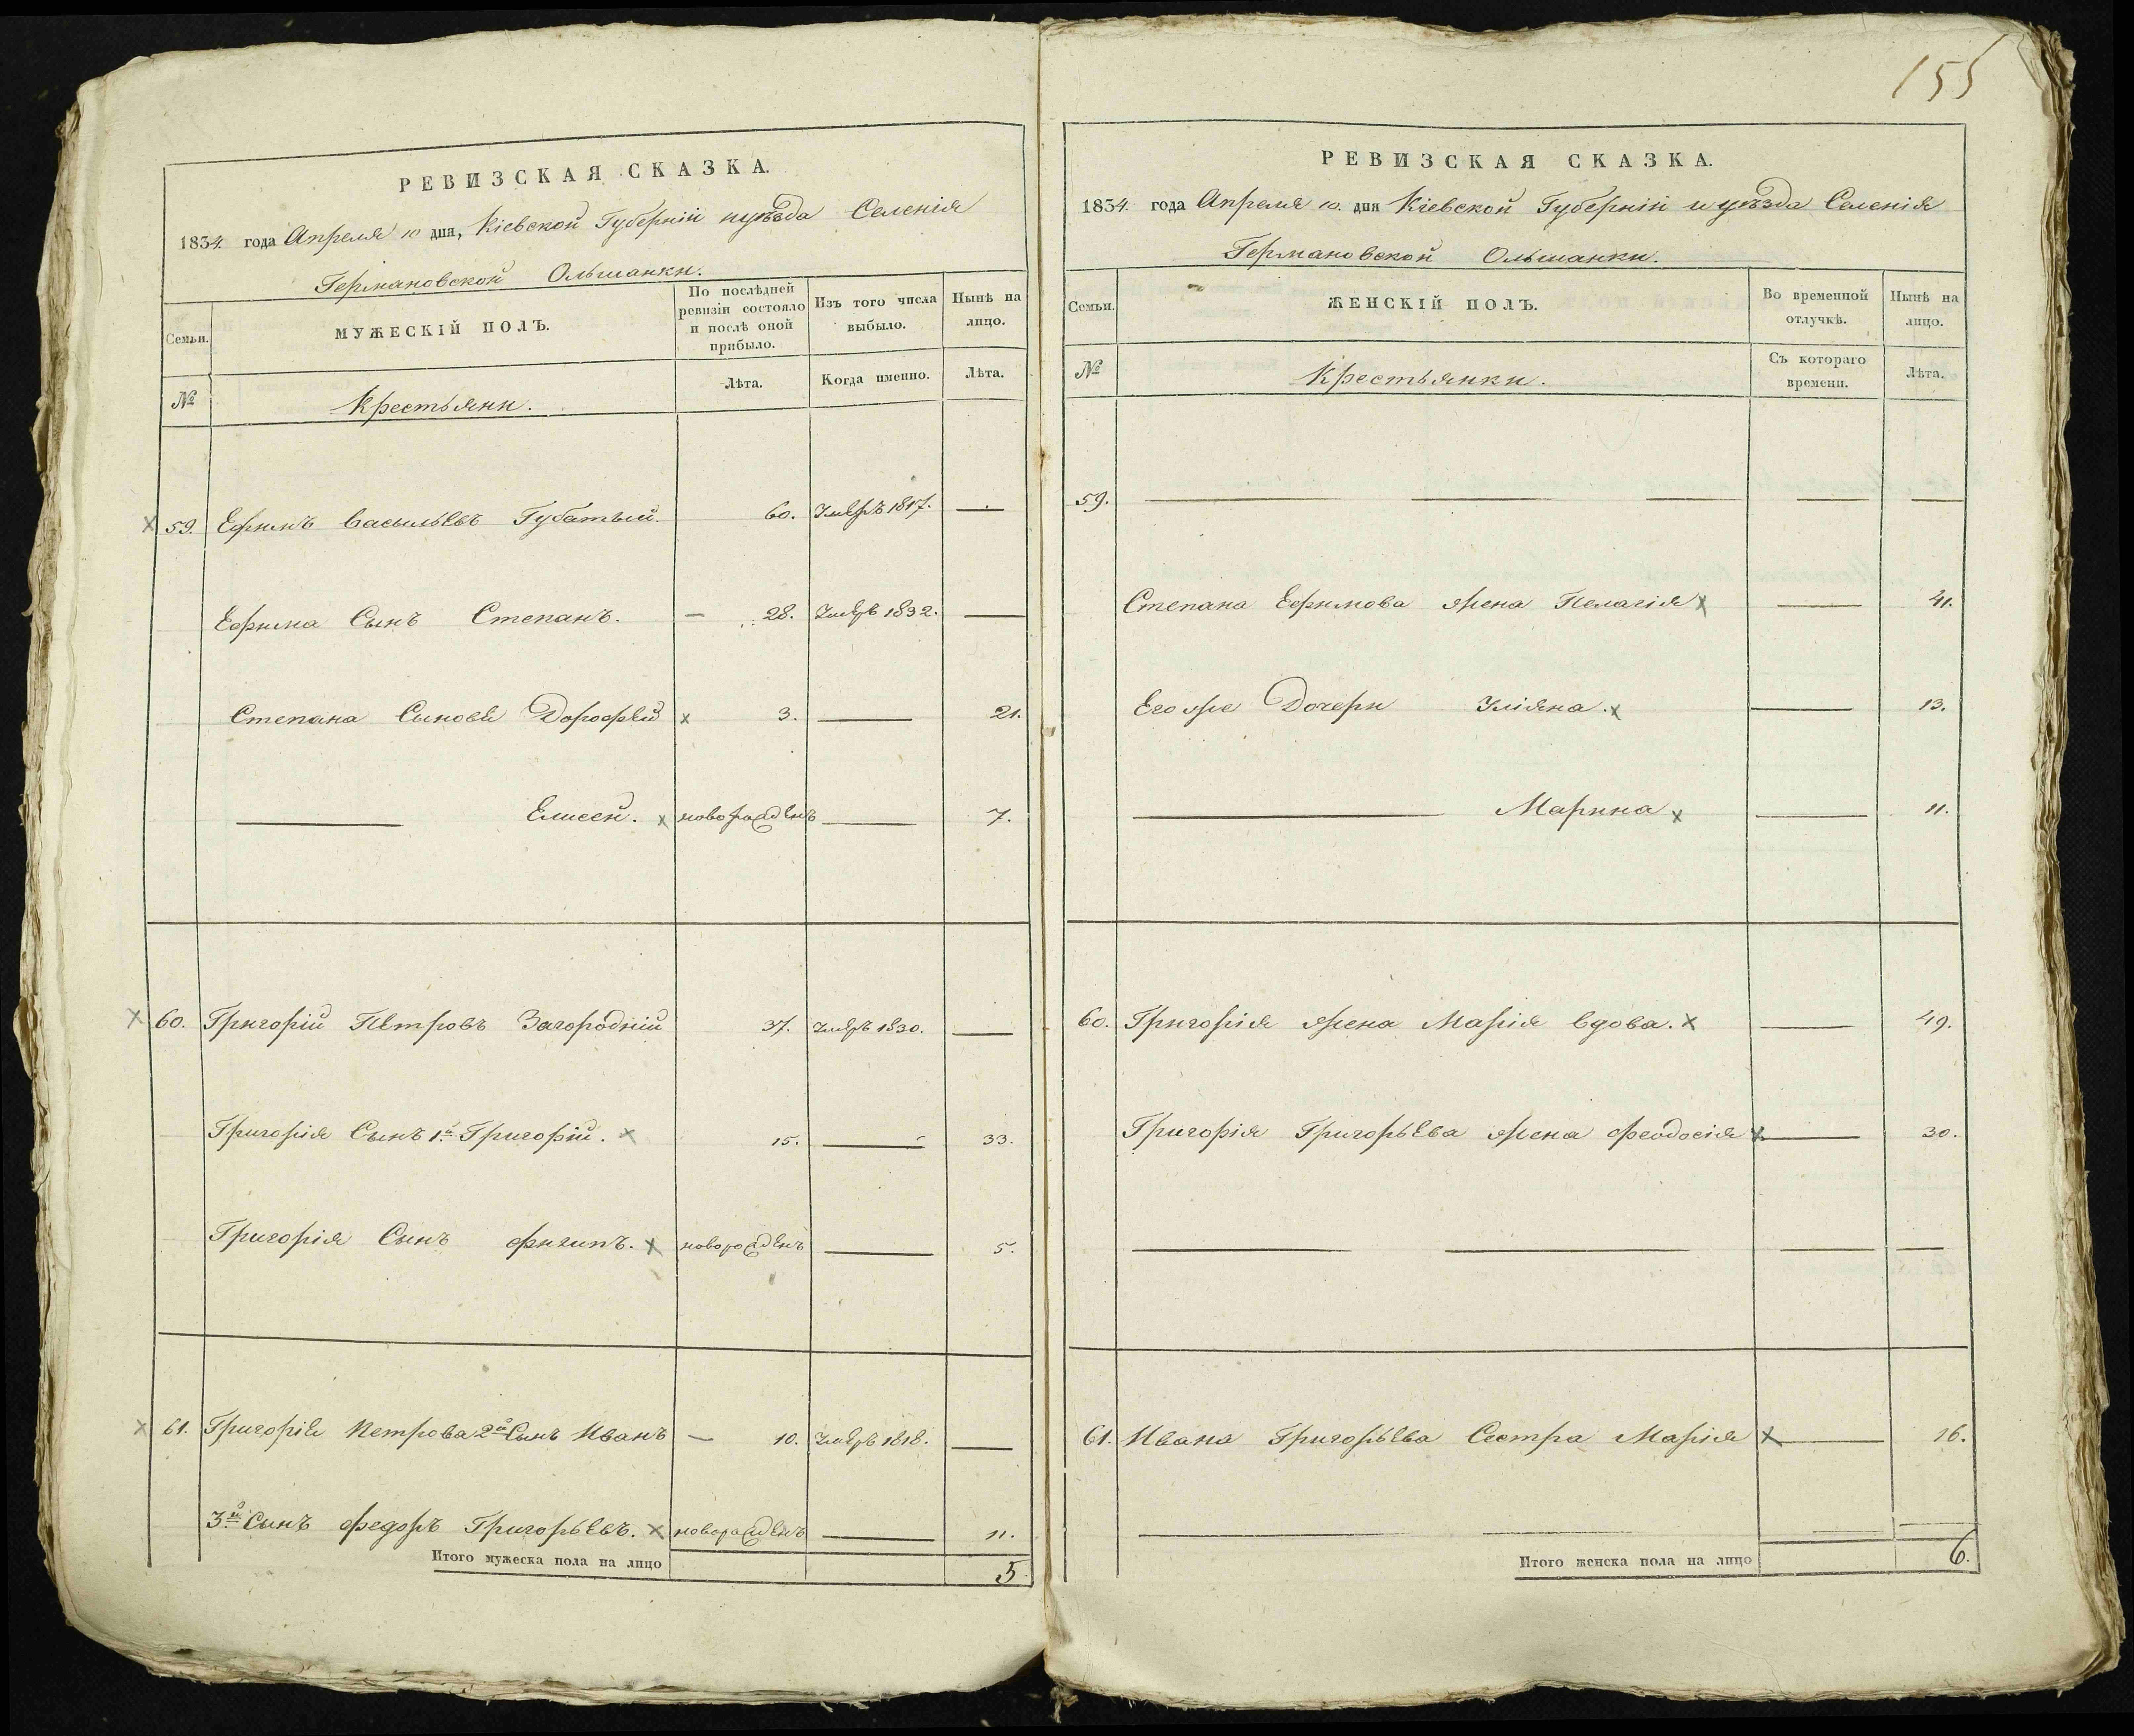 155
РЕВИЗСКАЯ СКАЗКА.
1834. года Апреля 10 дня, Кіевской Губерніи и уѣзда Селенія
Германовской Ольшанки.
Семьи.
МУЖЕСКІЙ ПОЛЪ.
По послѣдней ревизіи состояло и послѣ оной прибыло.
Изъ того числа выбыло.
Нынѣ на лицо.
№
Крестьяни.
Лѣта.
Когда именно.
Лѣта.
59. Ефимъ Васильевъ Губатый. 60. Умеръ 1817. —
Ефима Сынъ Степанъ. — 28. Умеръ 1832. —
Степана Сыновья Дорофей x 3. — 21.
— Елисей. x новорожденъ — 7.
60. Григорій Петровъ Загородній 37. Умеръ 1830. —
Григорія Сынъ 1й Григорій. x 15. — 33.
Григорія Сынъ Филипъ. x новорожденъ — 5.
61. Григорія Петрова 2й Сынъ Иванъ — 10. Умеръ 1818. —
3й Сынъ Федоръ Григорьевъ. x новорожденъ — 11.
Итого мужеска пола на лицо 5
РЕВИЗСКАЯ СКАЗКА.
1834. года Апреля 10. дня Кіевской Губерніи и уѣзда Селенія
Германовской Ольшанки.
Семьи.
ЖЕНСКІЙ ПОЛЪ.
Во временной отлучкѣ.
Нынѣ на лицо.
№
Крестьянки.
Съ котораго времени.
Лѣта.
59. — — — — —
Степана Ефимова жена Пелагія x — 41.
Его же Дочери Уліяна. x — 13.
— Марина x — 11.
60. Григорія жена Марія вдова. x — 49.
Григорія Григорьева жена Феодосія x — 30.
— — — —
61. Ивана Григорьева Сестра Марія x — 16.
— — — —
Итого женска пола на лицо 6.